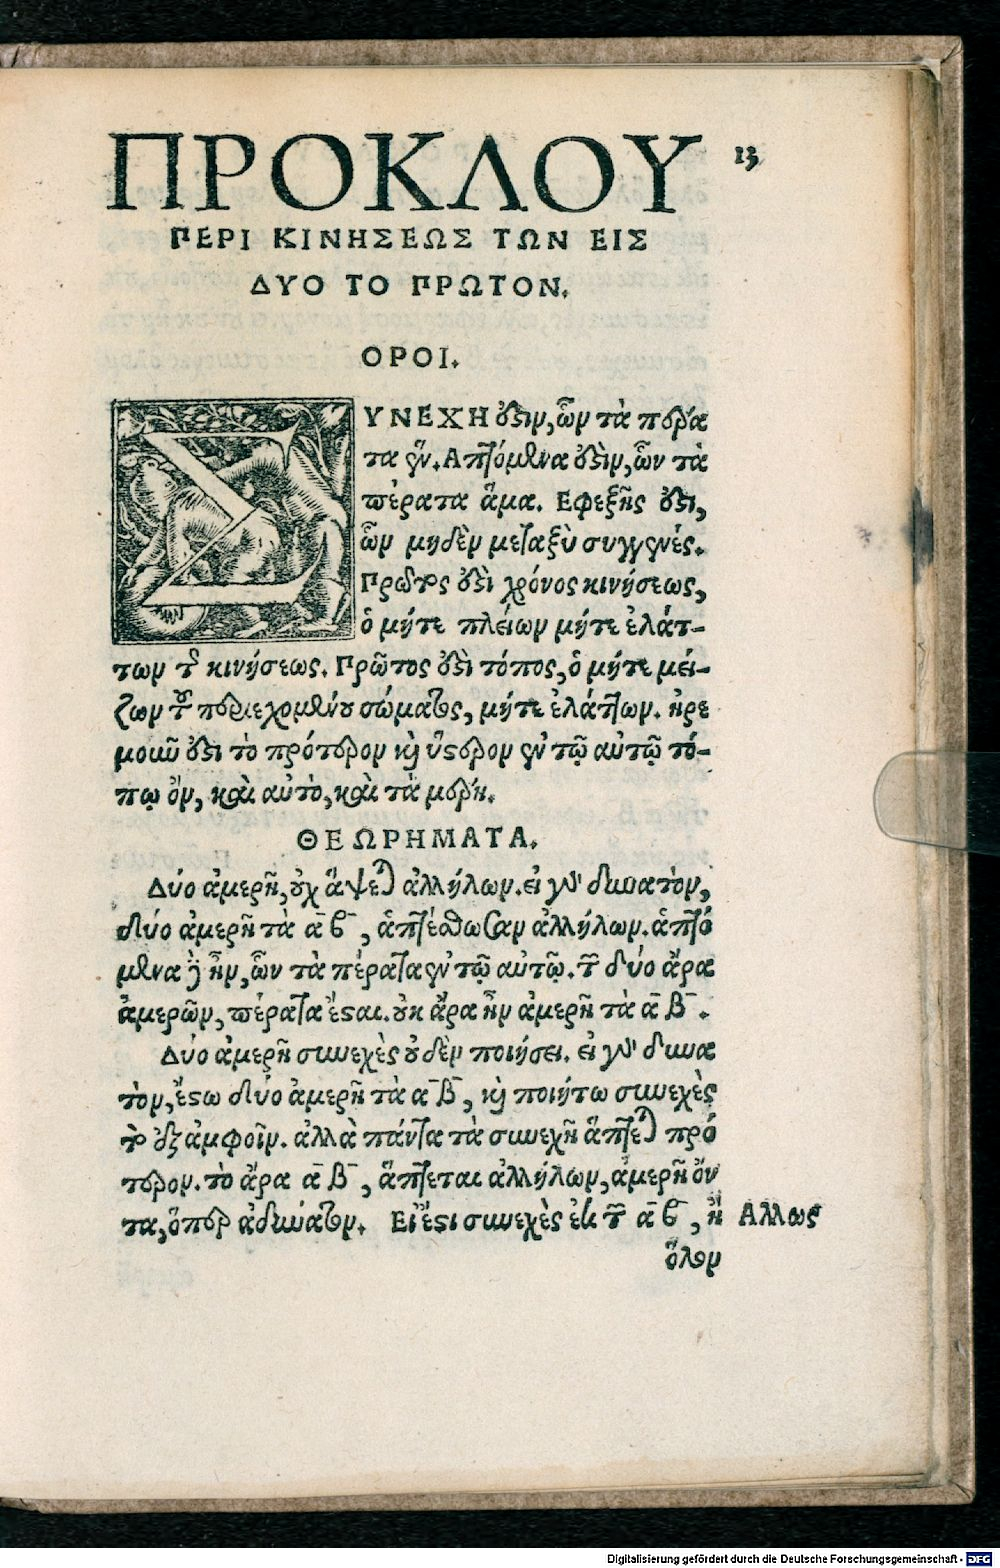 ΠΡΟΚΛΟΥ 13
ΠΕΡΙ ΚΙΝΗΣΕΩΣ ΤΩΝ ΕΙΣ
ΔΥΟ ΤΟ ΠΡΩΤΟΝ.
ΟΡΟΙ.
ΣΥΝΕΧΗ ὅϛιν, ὧν τὰ πέρα
τα ἕν. Απτόμενα ὅϛὶν, ὧν τὰ
πέρατα ἅμα. Εφεξῆς ὅϛι,
ὧν μηδὲν μεταξὺ συγγενές.
Πρῶτος ὅϛὶ χρόνος κινήσεως,
ὁ μήτε πλείων μήτε ἐλάτ-
των τῆς κινήσεως. Πρῶτος ὅϛὶ τόπος, ὁ μήτε μεί-
ζων τοῦ περιεχομένου σώματος, μήτε ἐλάττων. ἠρε
μοιοῦ ὅϛι τὸ πρότερον κὶ ὕϛερον ἐν τῷ αὐτῷ τό-
πῳ ὄν, καὶ αὐτὸ, καὶ τὰ μέρη.
ΘΕΩΡΗΜΑΤΑ.
Δύο ἀμερῆ, οὐχ ἅψεται ἀλλήλων. εἰ γὰρ δυνατὸν,
δύο ἀμερῆ τὰ α β, ἁπτέσθωσαν ἀλλήλων. ἁπτό
μενα δὲ ἦν, ὧν τὰ πέρατα ἐν τῷ αὐτῷ. τῶν δύο ἄρα
ἀμερῶν, πέρατα ἔϛαι. οὐκ ἄρα ἦν ἀμερῆ τὰ α β.
Δύο ἀμερῆ συνεχὲς οὐδὲν ποιήσει. εἰ γὰρ δυνα
τὸν, ἔϛω δύο ἀμερῆ τὰ α β, κὶ ποιήτω συνεχὲς
τὸ ἐξ ἀμφοῖν. ἀλλὰ πάντα τὰ συνεχῆ ἅπτεται πρό
τερον. τὸ ἄρα α β, ἅπτεται ἀλλήλων, ἀμερῆ ὄν
τα, ὅπερ ἀδύνατον. Εἰ ἔϛι συνεχὲς ἐκ τῶν α β, ἢ Αλλως
ὅλον
Digitalisierung gefördert durch die Deutsche Forschungsgemeinschaft - DFG